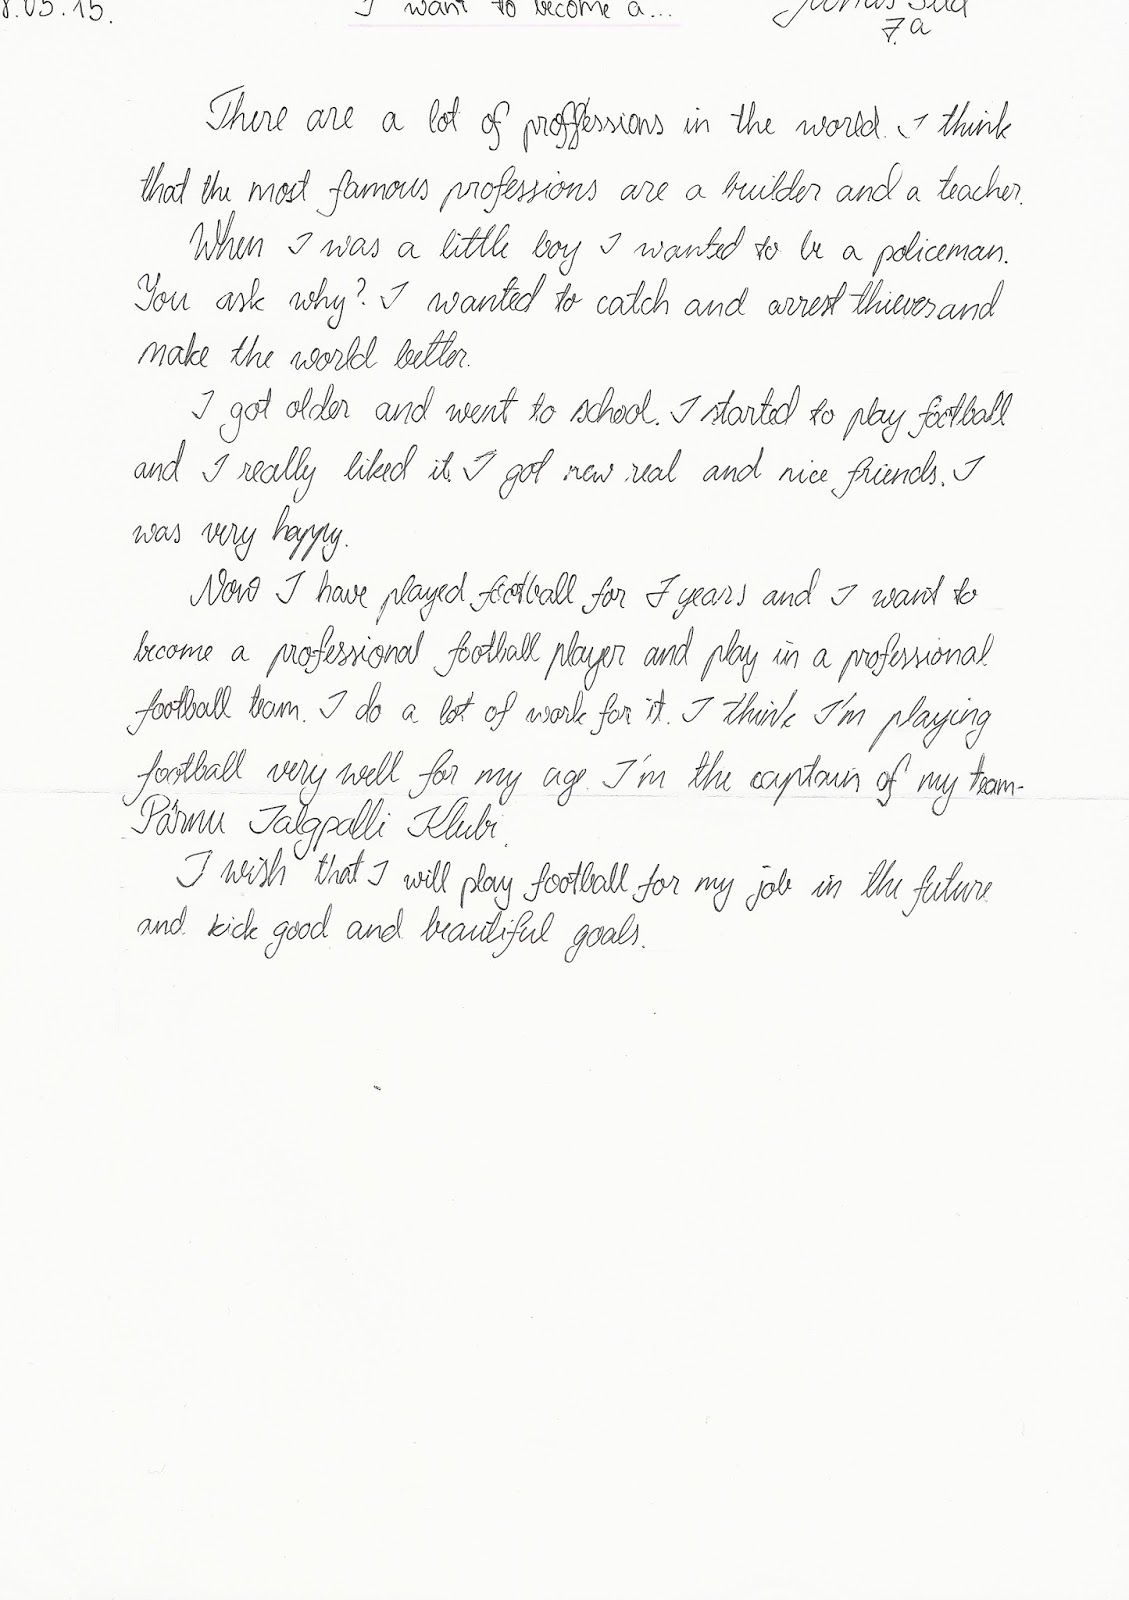 8.05.15. I want to become a...
7.a
There are a lot of proffessions in the world. I think
that the most famous professions are a builder and a teacher.
When I was a little boy I wanted to be a policeman.
You ask why? I wanted to catch and arrest thieves and
make the world better.
I got older and went to school. I started to play football
and I really liked it. I got new real and nice friends. I
was very happy.
Now I have played football for 7 years and I want to
become a professional football player and play in a professional
football team. I do a lot of work for it. I think I'm playing
football very well for my age. I'm the captain of my team-
Pärnu Jalgpalli Klubi.
I wish that I will play football for my job in the future
and kick good and beautiful goals.